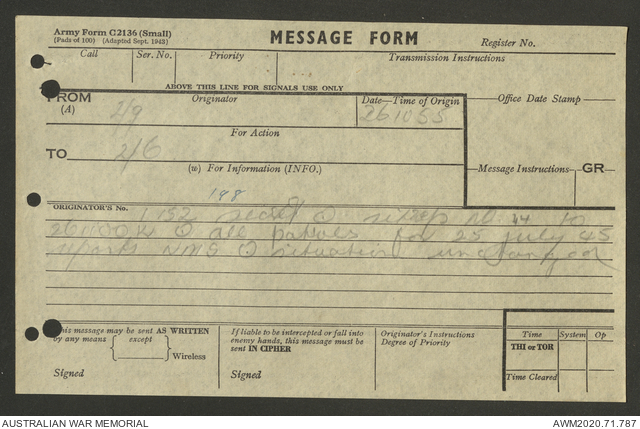 Army Form C2136 (Small)
(Pads of 100) (Adapted Sept. 1943)
MESSAGE FORM
Register No.
Call
Ser. No.
Priority
Transmission Instructions
ABOVE THIS LINE FOR SIGNALS USE ONLY
FROM
(A)
Originator
2/9
Date—Time of Origin
261055
Office Date Stamp
For Action
TO
2/6
(w) For Information (INFO.)
Message Instructions
GR
198
ORIGINATOR'S No.
secret sitrep no to
all patrols for 25 July 45
situation unchanged
This message may be sent AS WRITTEN
by any means except
Wireless
Signed
If liable to be intercepted or fall into
enemy hands, this message must be
sent IN CIPHER
Signed
Originator's Instructions
Degree of Priority
Time
System
Op
THI or TOR
Time Cleared
AUSTRALIAN WAR MEMORIAL
AWM2020.71.787